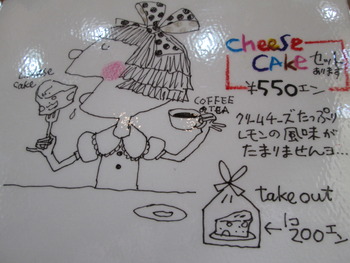 cheese
CAKE
セットも
あります
¥550エン
クリームチーズたっぷり
レモンの風味が
たまりませんヨ...
cheese
cake
COFFEE
TEA
take out
1コ
←200エン